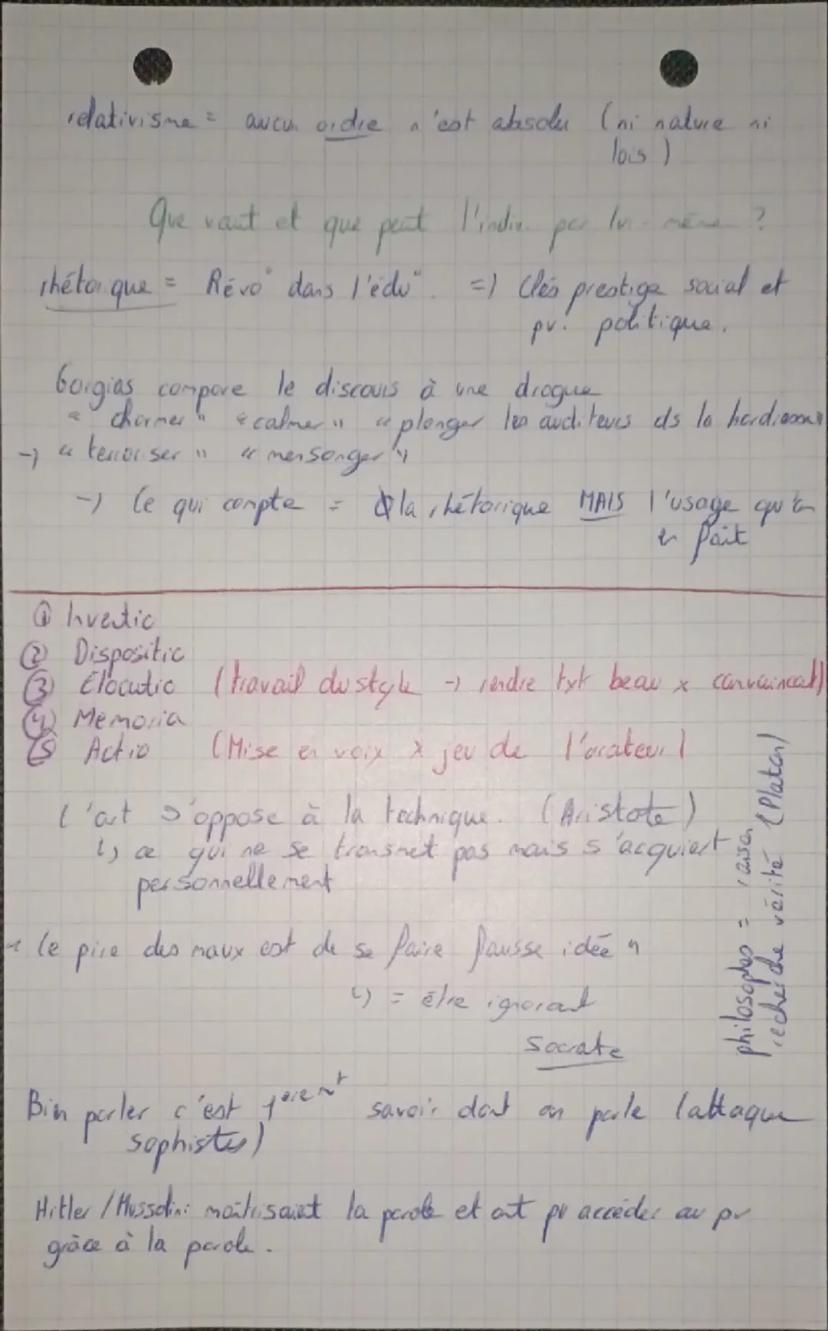 relativisme = aucun ordre n'est absolu (ni nature ni
lois)
Que vaut et que peut l'indiv. par lui-même ?
rhétorique = Révo° dans l'édu°. => Clés prestige social et
pv. politique.
Gorgias compare le discours à une drogue
" charmer" "calmer" "plonger les auditeurs ds la hardiesse"
-> "terroriser" "mensonger"
-> Ce qui compte = la rhétorique MAIS l'usage qu'on
en fait
① Inventio
② Dispositio
③ Élocutio (travail du style -> rendre txt beau x convaincant)
④ Memoria
⑤ Actio (Mise en voix x jeu de l'orateur)
L'art s'oppose à la technique. (Aristote)
↳ ce qui ne se transmet pas mais s'acquiert
personnellement
philosophes = raison
recherche vérité (Platon)
" Le pire des maux est de se faire fausse idée "
↳ = être ignorant
Socrate
Bien parler c'est 1èremt savoir dont on parle (attaque
sophistes)
Hitler/Mussolini maîtrisaient la parole et ont pu accéder au pv
grâce à la parole.